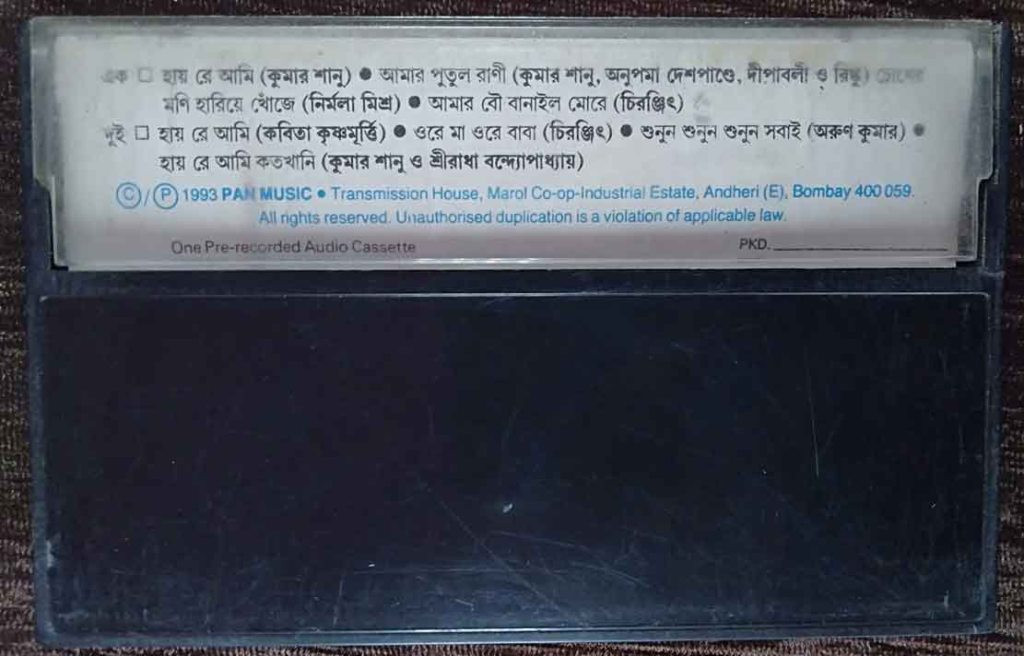 এক □ হায় রে আমি (কুমার শানু) ● আমার পুতুল রাণী (কুমার শানু, অনুপমা দেশপাণ্ডে, দীপাবলী ও রিঙ্কু) চোখের
মণি হারিয়ে খোঁজে (নির্মলা মিশ্র) ● আমার বৌ বানাইল মোরে (চিরঞ্জিৎ)
দুই □ হায় রে আমি (কবিতা কৃষ্ণমূর্ত্তি) ● ওরে মা ওরে বাবা (চিরঞ্জিৎ) ● শুনুন শুনুন শুনুন সবাই (অরুণ কুমার) ●
হায় রে আমি কতখানি (কুমার শানু ও শ্রীরাধা বন্দ্যোপাধ্যায়)
Ⓒ/Ⓟ 1993 PAN MUSIC ● Transmission House, Marol Co-op-Industrial Estate, Andheri (E), Bombay 400 059.
All rights reserved. Unauthorised duplication is a violation of applicable law.
One Pre-recorded Audio Cassette PKD.